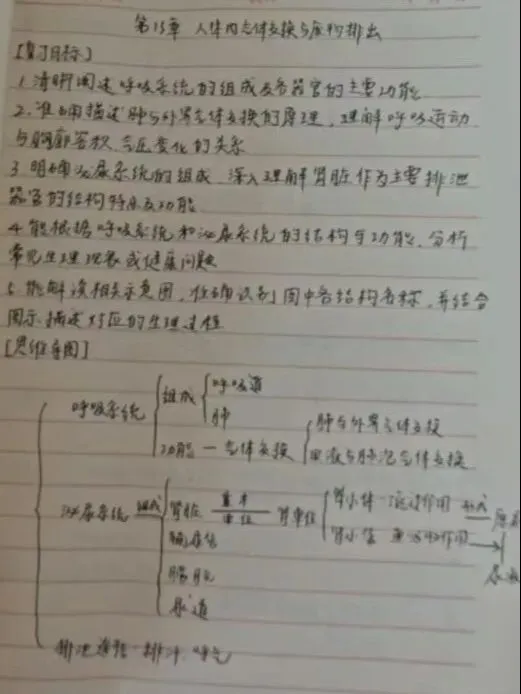 第15章 人体内气体交换与废物排出
[复习目标]
1.清晰阐述呼吸系统的组成及各器官的主要功能
2.准确描述肺与外界气体交换的原理,理解呼吸运动
与胸廓容积、气压变化的关系
3.明确泌尿系统的组成,深入理解肾脏作为主要排泄
器官的结构特点及功能
4.能根据呼吸系统和泌尿系统的结构与功能,分析
常见生理现象或健康问题
5.能解读相关示意图,准确识别图中各结构名称,并结合
图示描述对应的生理过程
[思维导图]
呼吸系统 组成 呼吸道
肺
功能 一 气体交换 肺与外界气体交换
血液与肺泡气体交换
泌尿系统 组成 肾脏 基本单位 肾单位 肾小体 - 滤过作用 形成 原尿
肾小管 重吸收作用 尿液
输尿管
膀胱
尿道
排泄途径 - 排汗、呼气